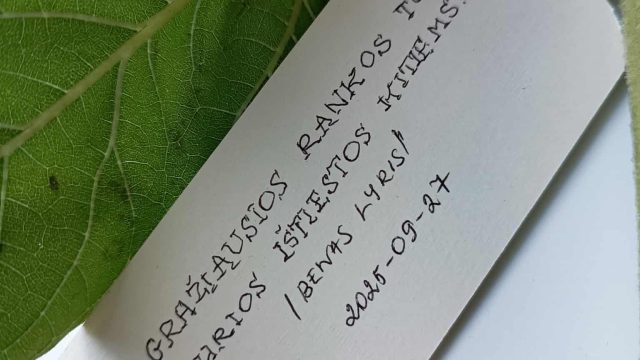 GRAŽIAUSIOS RANKOS
IŠTIESTOS KITIEMS.
/BENAS LYRIS/
2025-09-27